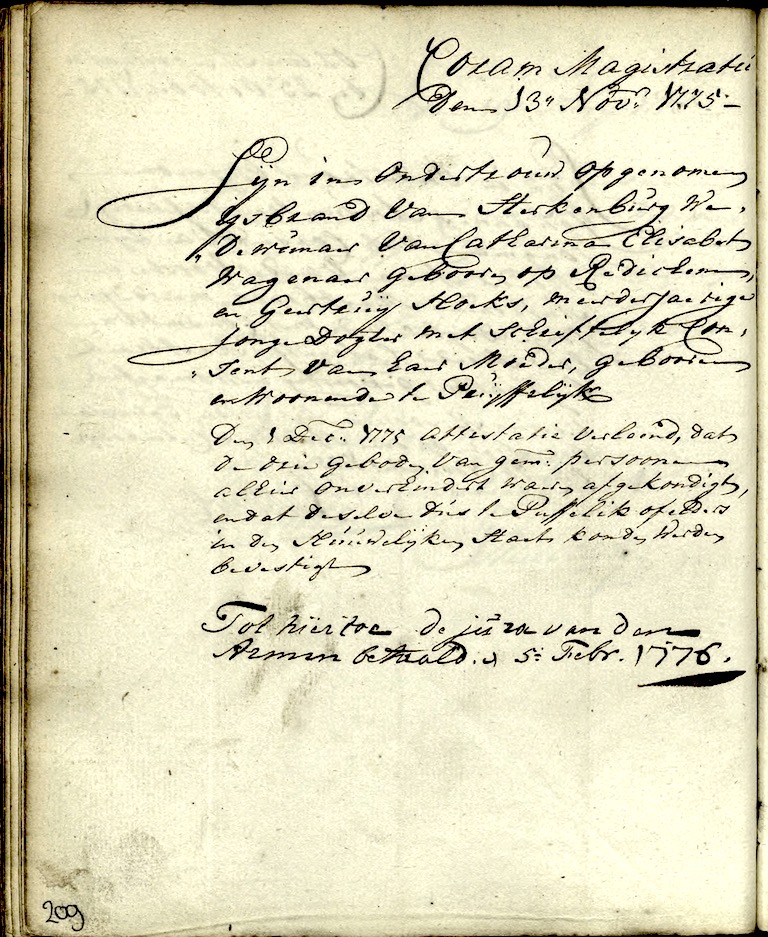 Coram Magistratu
Den 13n Novr. 1775.-
Sijn in Ondertrouw opgenomen
Ijsbrand Van Sterkenburg We-
"Dewenaar Van Catharina Elisabet
Wagenaar gebooren op Redichem,
en Geertruij Hoeks, meerderjaerige
Jonge Dogter met Schriftelijk Con-
"sent van haar Moeder, gebooren
en Woonende te Puijffelijk
Den 1 Decr. 1775 attestatie verleend, dat
de drie geboden van gem: persoonen
alhier onverhindert waren afgekondigt,
en dat deselve dus te Puffelik of elders
in den Houwelijken Staet konden werden
bevestigt
Tot hiertoe de jura van den
Armen betaald. d 5: Febr. 1776.
209